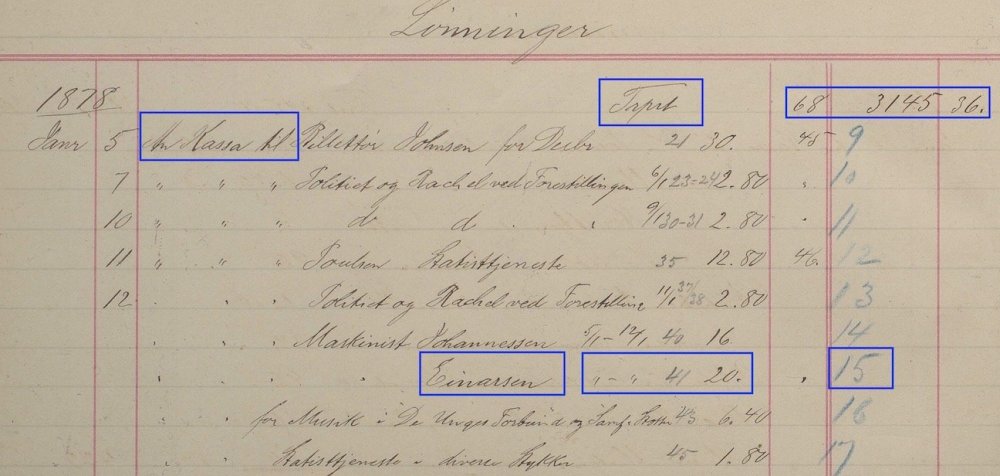 Lønninger
1878 Trprt 68 3145 36.
Janr 5 An Kassa til Billettør Johnsen for Decbr 21 30. 45 9
7 " " " Politiet og Rachel ved Forestillingen 6/1 23-24 2.80 " 10
10 " " " d d " 9/1 30-31 2.80 " 11
11 " " " Poulsen Statisttjeneste 35 12.80 46. 12
12 " " " Politiet og Rachel ved Forestilling 11/1 37/38 2.80 13
" " " Maskinist Johannessen 5/1 - 12/1 40 16 14
" " " " Einarsen " - " 41 20. " 15
" " for Musik i De Unges Forbund og Samf. Støtter 43 6.40 16
" " Statisttjeneste i diverse Stykker 45 1.80 17